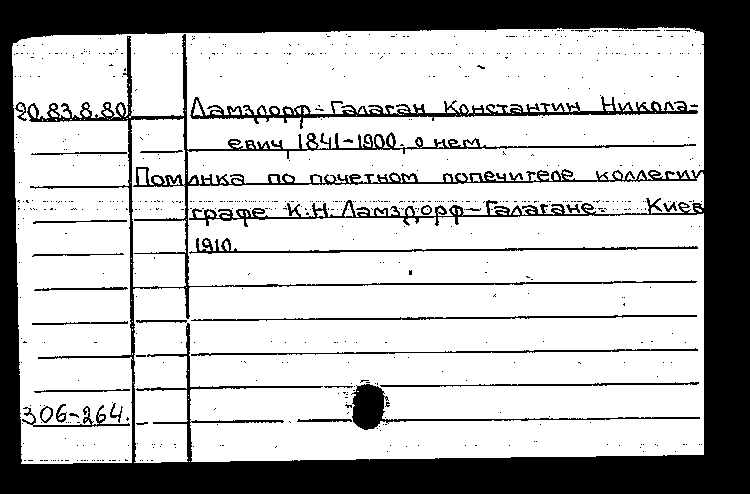 20.83.8.80 Ламздорф-Галаган, Константин Никола-
евич, 1841-1900, о нем.
Поминка по почетном попечителе коллегии
графе К.Н. Ламздорф-Галагане. Киев
1910.
306-264.